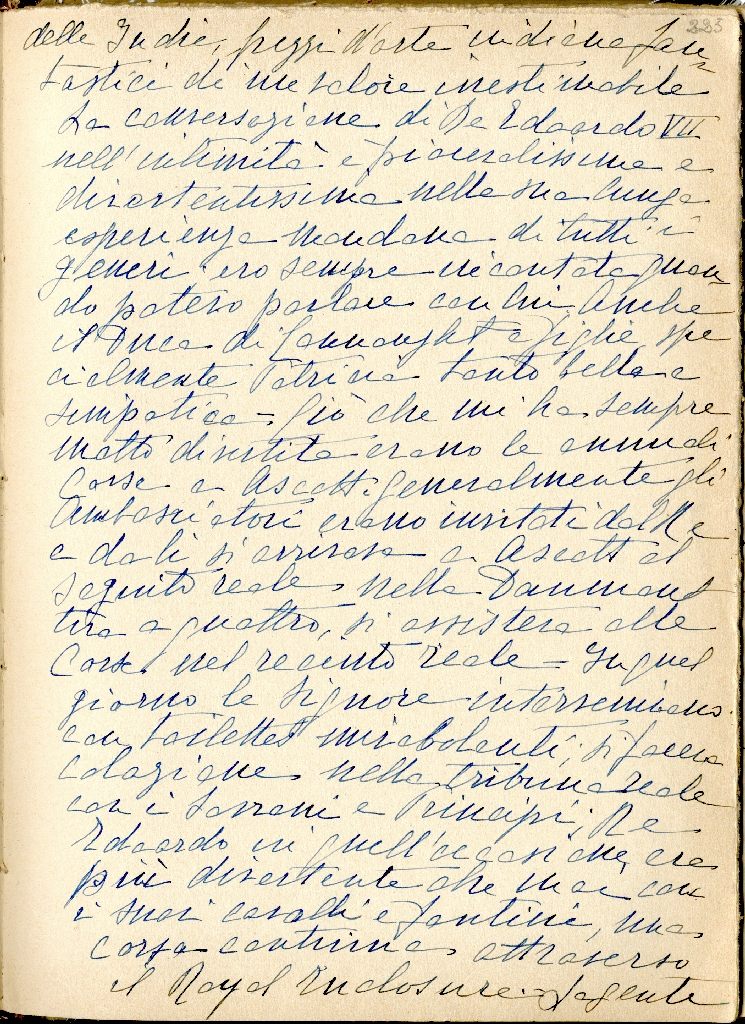 223
delle Indie, pezzi d'arte indiana fan=
tastici di un valore inestimabile
La conversazione di Re Edoardo VII
nell'intimità è piacevolissima e
divertentissima nella sua lunga
esperienza mondana di tutti i
generi. ero sempre incantata quan=
do potevo parlare con lui. Anche
il Duca di Connaught e figlie, spe
cialmente Patricia tanto bella e
simpatica = Ciò che mi ha sempre
molto divertita erano le annuali
Corse a Ascott. generalmente gli
Ambasciatori erano invitati dal Re
e da lì si arrivava a Ascott al
seguito reale nella Daumont
tira a quattro, si assisteva alle
Corse nel recinto reale = In quel
giorno le Signore intervenivano
con toilettes mirabolanti, si faceva
colazione nella tribuna reale
con i Sovrani e Principi, Re
Edoardo in quell'occasione era
più divertente che mai con
i suoi cavalli e fantini, una
corsa continua attraverso
il Royal Enclosure. La gente